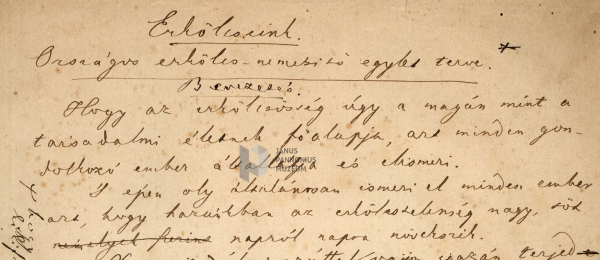 Erkölcseink.
Országos erkölcs-nemesitő egylet terve.
Bevezető.
Hogy az erkölcsösség úgy a magán mint a
társadalmi életnek főalapja, azt minden gon-
dolkozó ember átlátja és elismeri.
S épen oly általánosan ismeri el minden ember
azt, hogy hazánkban az erkölcstelenség nagy, sőt
némelyek szerint napról napra növekszik.
terjed
JANUS
PANNONIUS
MÚZEUM